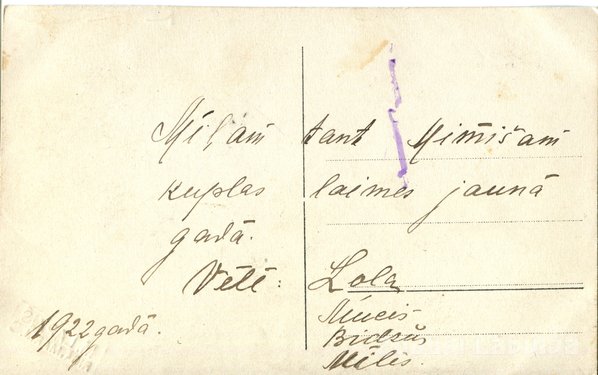 Mīļam tant Mimišam
kuplas laimes jaunā
gadā.
Vēlē: Lola
Mucis
Bidžus
Milis.
1922 gadā.